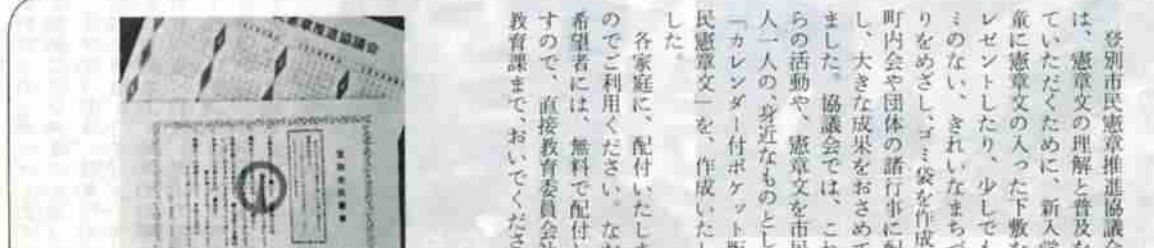 登別市民憲章推進協議
は、憲章文の理解と普及
ていただくために、新入
童に憲章文の入った下敷
レゼントしたり、少しで
ミのない、きれいなまち
りをめざし、ゴミ袋を作成
町内会や団体の諸行事に配
し、大きな成果をおさめて
ました。協議会では、これ
らの活動や、憲章文を市民
人一人の、身近なものとし
「カレンダー付ポケット版
民憲章文」を、作成いたし
した。
各家庭に、配付いたしま
のでご利用ください。なお
希望者には、無料で配付い
すので、直接教育委員会社
教育課まで、おいでくださ
章推進協議会